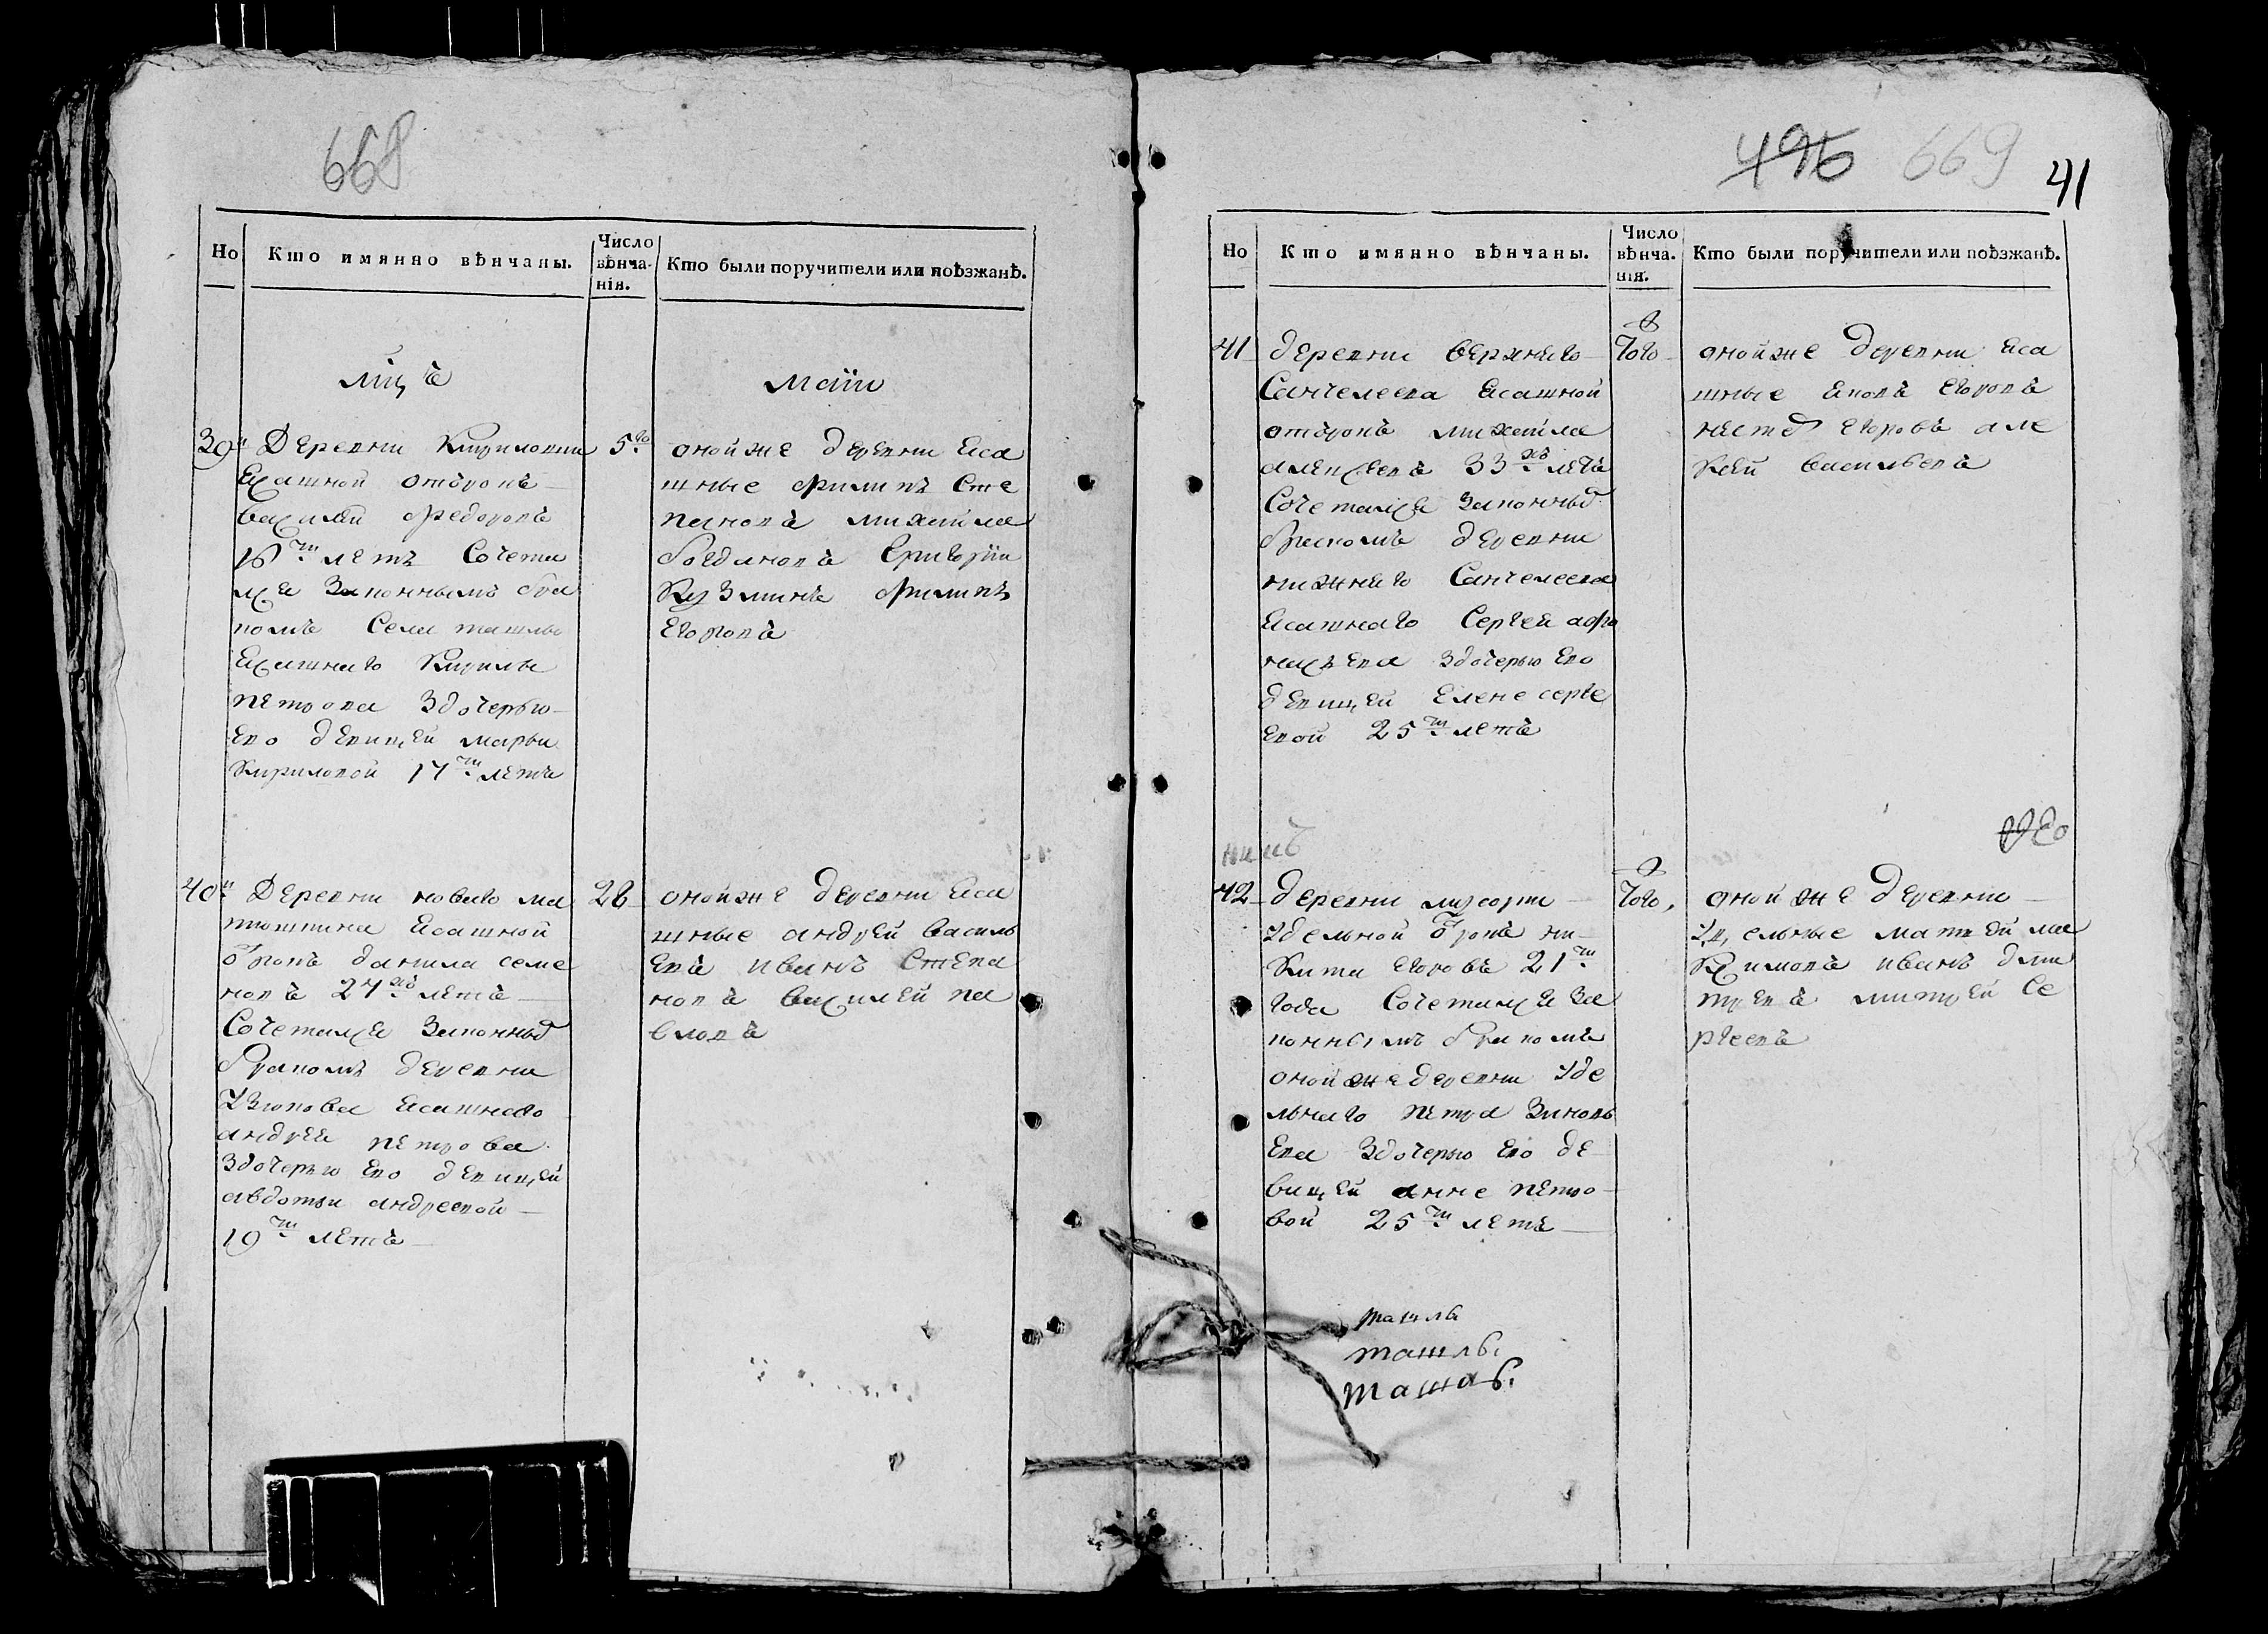 668
Но
Кто имянно вѣнчаны.
Число
вѣнча-
нія.
Кто были поручители или поѣзжанѣ.
мц҃ъ
маiи
39й
Деревни Кириловки
Ясашной отърокъ
василий федоровъ
16ти летъ Сочета
лся Законнымъ бра
комъ Села ташлы
Ясашнаго Кирилы
петрова Здочерью
Ево девицей марьи
Кириловой 17ти летъ
5го
оной же деревни Яса
шные филипъ Сте
пановъ михаила
богдановъ Григорiи
Кузминъ филипъ
Егоровъ
40й
Деревни новаго ма
тюшкина Ясашной
отрокъ данила семе
новъ 24хъ летъ
Сочетался Законны
браком деревни
Узюкова Ясашнаго
андрея петрова
Здочерью Ево девицей
авдотьи андреевой
19ти летъ
28
оной же деревни Яса
шные андрей василь
евъ иванъ Степа
новъ василей па
вловъ
496 669
41
Но
Кто имянно вѣнчаны.
Число
вѣнча.
нія.
Кто были поручители или поѣзжанѣ.
41
деревни верхняго
Санчелеева Ясашной
отърокъ михаила
алексеевъ 33хъ летъ
Сочетался Законны
бракомъ деревни
нижняго Санчелеева
Ясашнаго Сергея афо
насьева Здочерью Ево
девицей Елене серге
евой 25ти летъ
Того
оной же деревни Яса
шные Яковъ Егоровъ
Егоровъ але
ксей васильевъ
42
деревни мусорки
Удельной отрокъ ни
кита Егоровъ 21ти
года Сочетался За
коннымъ бракомъ
оной же деревни Уде
льнаго петра Зиновь
ева Здочерью Ево де
вицей анне петро
вой 25ти летъ
Того
оной же деревни
Удельные матвей ма
ксимовъ иванъ дми
триевъ митрей Се
ргеевъ
ташла
ташлы